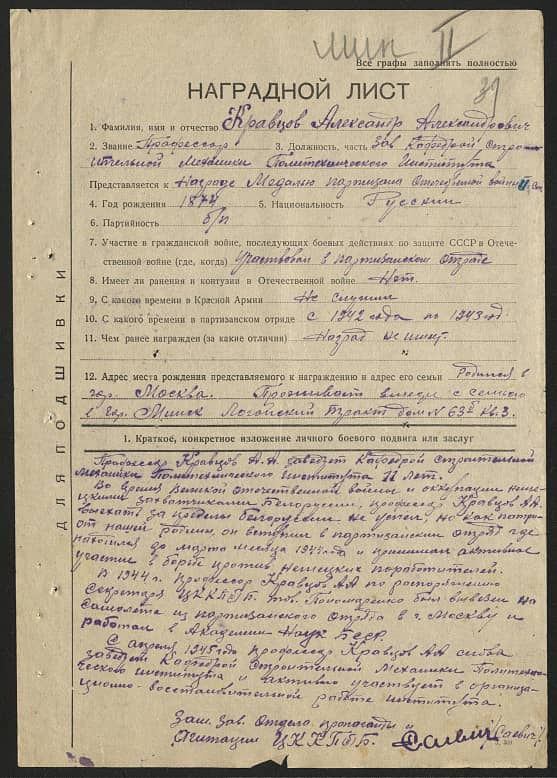 мин II
Все графы заполнять полностью
НАГРАДНОЙ ЛИСТ
39
1. Фамилия, имя и отчество Кравцов Александр Александрович
2. Звание Профессор 3. Должность, часть Зав Кафедрой Строи
ительной механики Политехнического Института
Представляется к Награде Медалью партизана Отечественной войны II
4. Год рождения 5. Национальность Русский
6. Партийность б/п
7. Участие в гражданской войне, последующих боевых действиях по защите СССР в Отече-
ственной войне (где, когда) Участвовал в партизанском отряде
8. Имеет ли ранения и контузии в Отечественной войне Нет.
9. С какого времени в Красной Армии Не служил
10. С какого времени в партизанском отряде с 1942 года по 1943 год.
11. Чем ранее награжден (за какие отличия) Наград не имеет.
12. Адрес места рождения представляемого к награждению и адрес его семьи Родился в
гор. Москва. Проживает вместе с семьею
в гор. Минск Логойский тракт дом N 63б кв. 3.
ДЛЯ ПОДШИВКИ
1. Краткое, конкретное изложение личного боевого подвига или заслуг
Профессор Кравцов А.А. заведует Кафедрой Строительной
механики Политехнического Института 11 лет.
Во время Великой отечественной войны и оккупации немец-
кими захватчиками Белоруссии, профессор Кравцов АА.
выехать за пределы Белоруссии не успел, но как патри-
от нашей родины, он вступил в партизанский отряд где
находился до марта месяца и принимал активное
участие в борьбе против немецких поработителей.
В 1944 г. профессор Кравцов АА по распоряжению
Секретаря ЦККПБ тов. Пономаренко был вывезен на
самолете из партизанского отряда в г. Москву и
работал в Академии Наук БССР.
С апреля 1945 года профессор Кравцов АА снова
заведует Кафедрой Строительной Механики Политехни-
ческого института и активно участвует в организа-
ционно-восстановительной работе института.
Зам. Зав. Отдела пропаганды и
Агитации ЦККПБ. Саевич /Саевич/